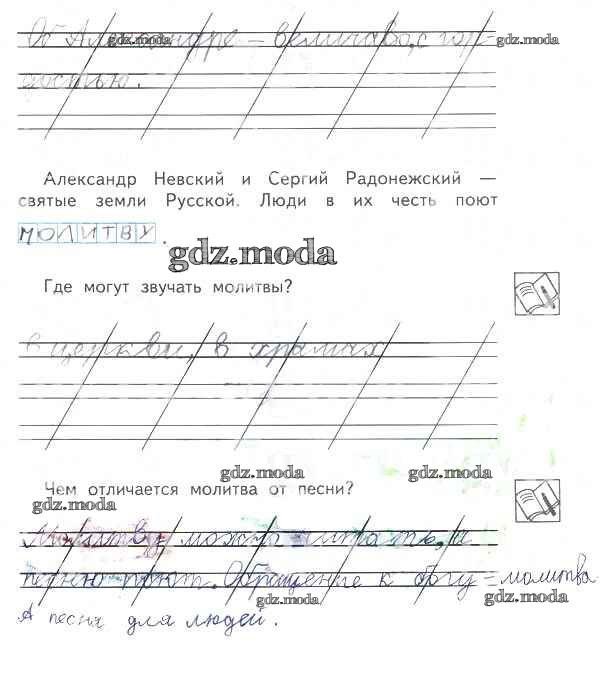 Об Александре – величаво, с гор-
достью.
gdz.moda gdz.moda
Александр Невский и Сергий Радонежский —
святые земли Русской. Люди в их честь поют
МОЛИТВУ.
gdz.moda
Где могут звучать молитвы?
в церкви, в храмах
gdz.moda gdz.moda
Чем отличается молитва от песни?
gdz.moda
Молитву можно читать, а
песню поют. Обращение к богу – молитва
gdz.moda gdz.moda
А песня для людей.